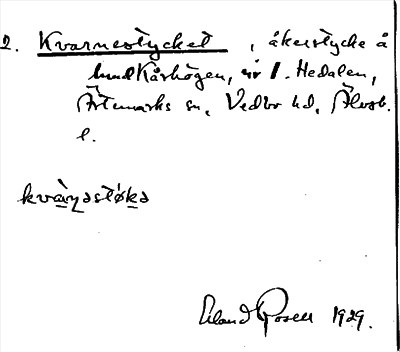 2. Kvarnestycket, åkerstycke å
hmd Kåshögen, nr 1. Hedalen,
Ärtemarks sn, Vedbo hd, Älvsb.
l.
kvà̱ṇastø̱ka
Erland Rosell 1929.